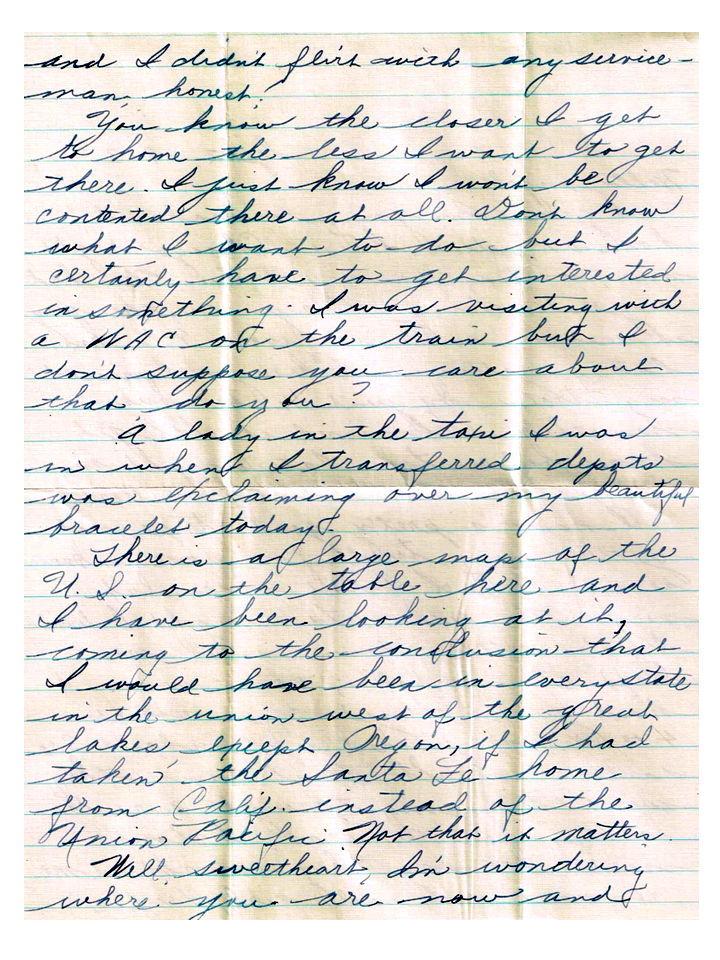 and I didn't flirt with any service-
man, honest.
You know the closer I get
to home the less I want to get
there. I just know I won't be
contented there at all. Don't know
what I want to do but I
certainly have to get interested
in something. I was visiting with
a WAC on the train but I
don't suppose you care about
that do you?
A lady in the taxi I was
in when I transferred depots
was exclaiming over my beautiful
bracelet today.
There is a large map of the
U. S. on the table here and
I have been looking at it,
coming to the conclusion that
I would have been in every state
in the union west of the great
lakes except Oregon, if I had
taken the Santa Fe home
from Calif. instead of the
Union Pacific. Not that it matters.
Well, sweetheart, I'm wondering
where you are now and